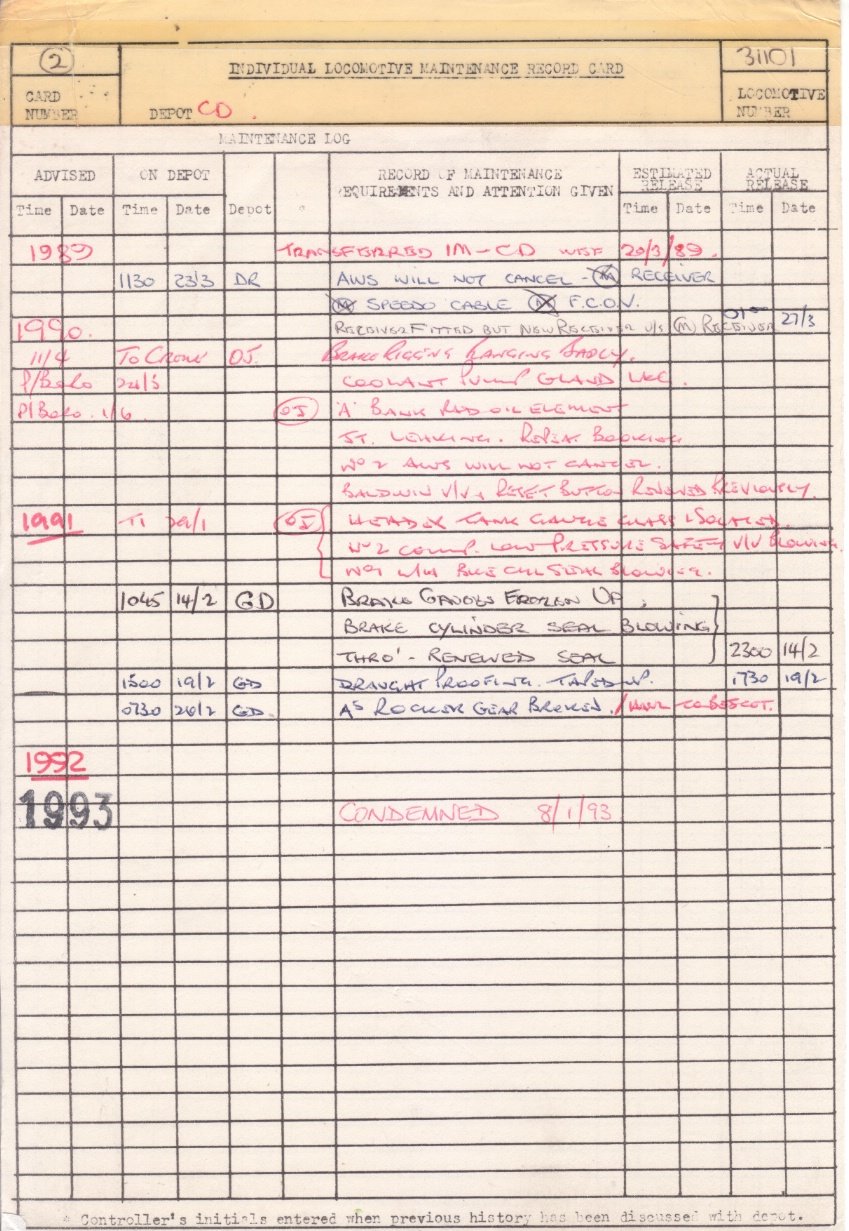 2 INDIVIDUAL LOCOMOTIVE MAINTENANCE RECORD CARD 31101
CARD NUMBER DEPOT CD. LOCOMOTIVE NUMBER
MAINTENANCE LOG
ADVISED ON DEPOT RECORD OF MAINTENANCE REQUIREMENTS AND ATTENTION GIVEN ESTIMATED RELEASE ACTUAL RELEASE
Time Date Time Date Depot * Time Date Time Date
1989 TRANSFERRED IM-CD WEF 20/3/89.
1130 23/3 DR AWS WILL NOT CANCEL - M RECEIVER
M SPEEDO CABLE M F.C.O.V.
1990. RECEIVER FITTED BUT NEW RECEIVER U/S M RECEIVER 0100 27/3
11/4 TO CREW OJ. BRAKE RIGGING BANGING BADLY.
P/BORO 24/5 COOLANT PUMP GLAND
P/BORO. 1/6 OJ 'A' BANK OIL ELEMENT
JT. LEAKING. REPEAT BOOKING
No 2 AWS WILL NOT CANCEL.
BALDWIN V/V & RESET BUTTON RENEWED PREVIOUSLY.
1991 TI 29/1 OJ HEADER TANK GAUGE GLASS ISOLATED.
No 2 COMP. LOW PRESSURE SAFETY V/V BLOWING.
No 1 BKE CYL SEAL BLOWING.
1045 14/2 GD BRAKE GAUGES FROZEN UP.
BRAKE CYLINDER SEAL BLOWING
THRO' - RENEWED SEAL 2300 14/2
1500 19/2 GD DRAUGHT PROOFING. TAPED UP. 1730 19/2
0730 20/2 GD. A5 ROCKER GEAR BROKEN. / HAUL TO BESCOT.
1992
1993 CONDEMNED 8/1/93
* Controller's initials entered when previous history has been discussed with depot.